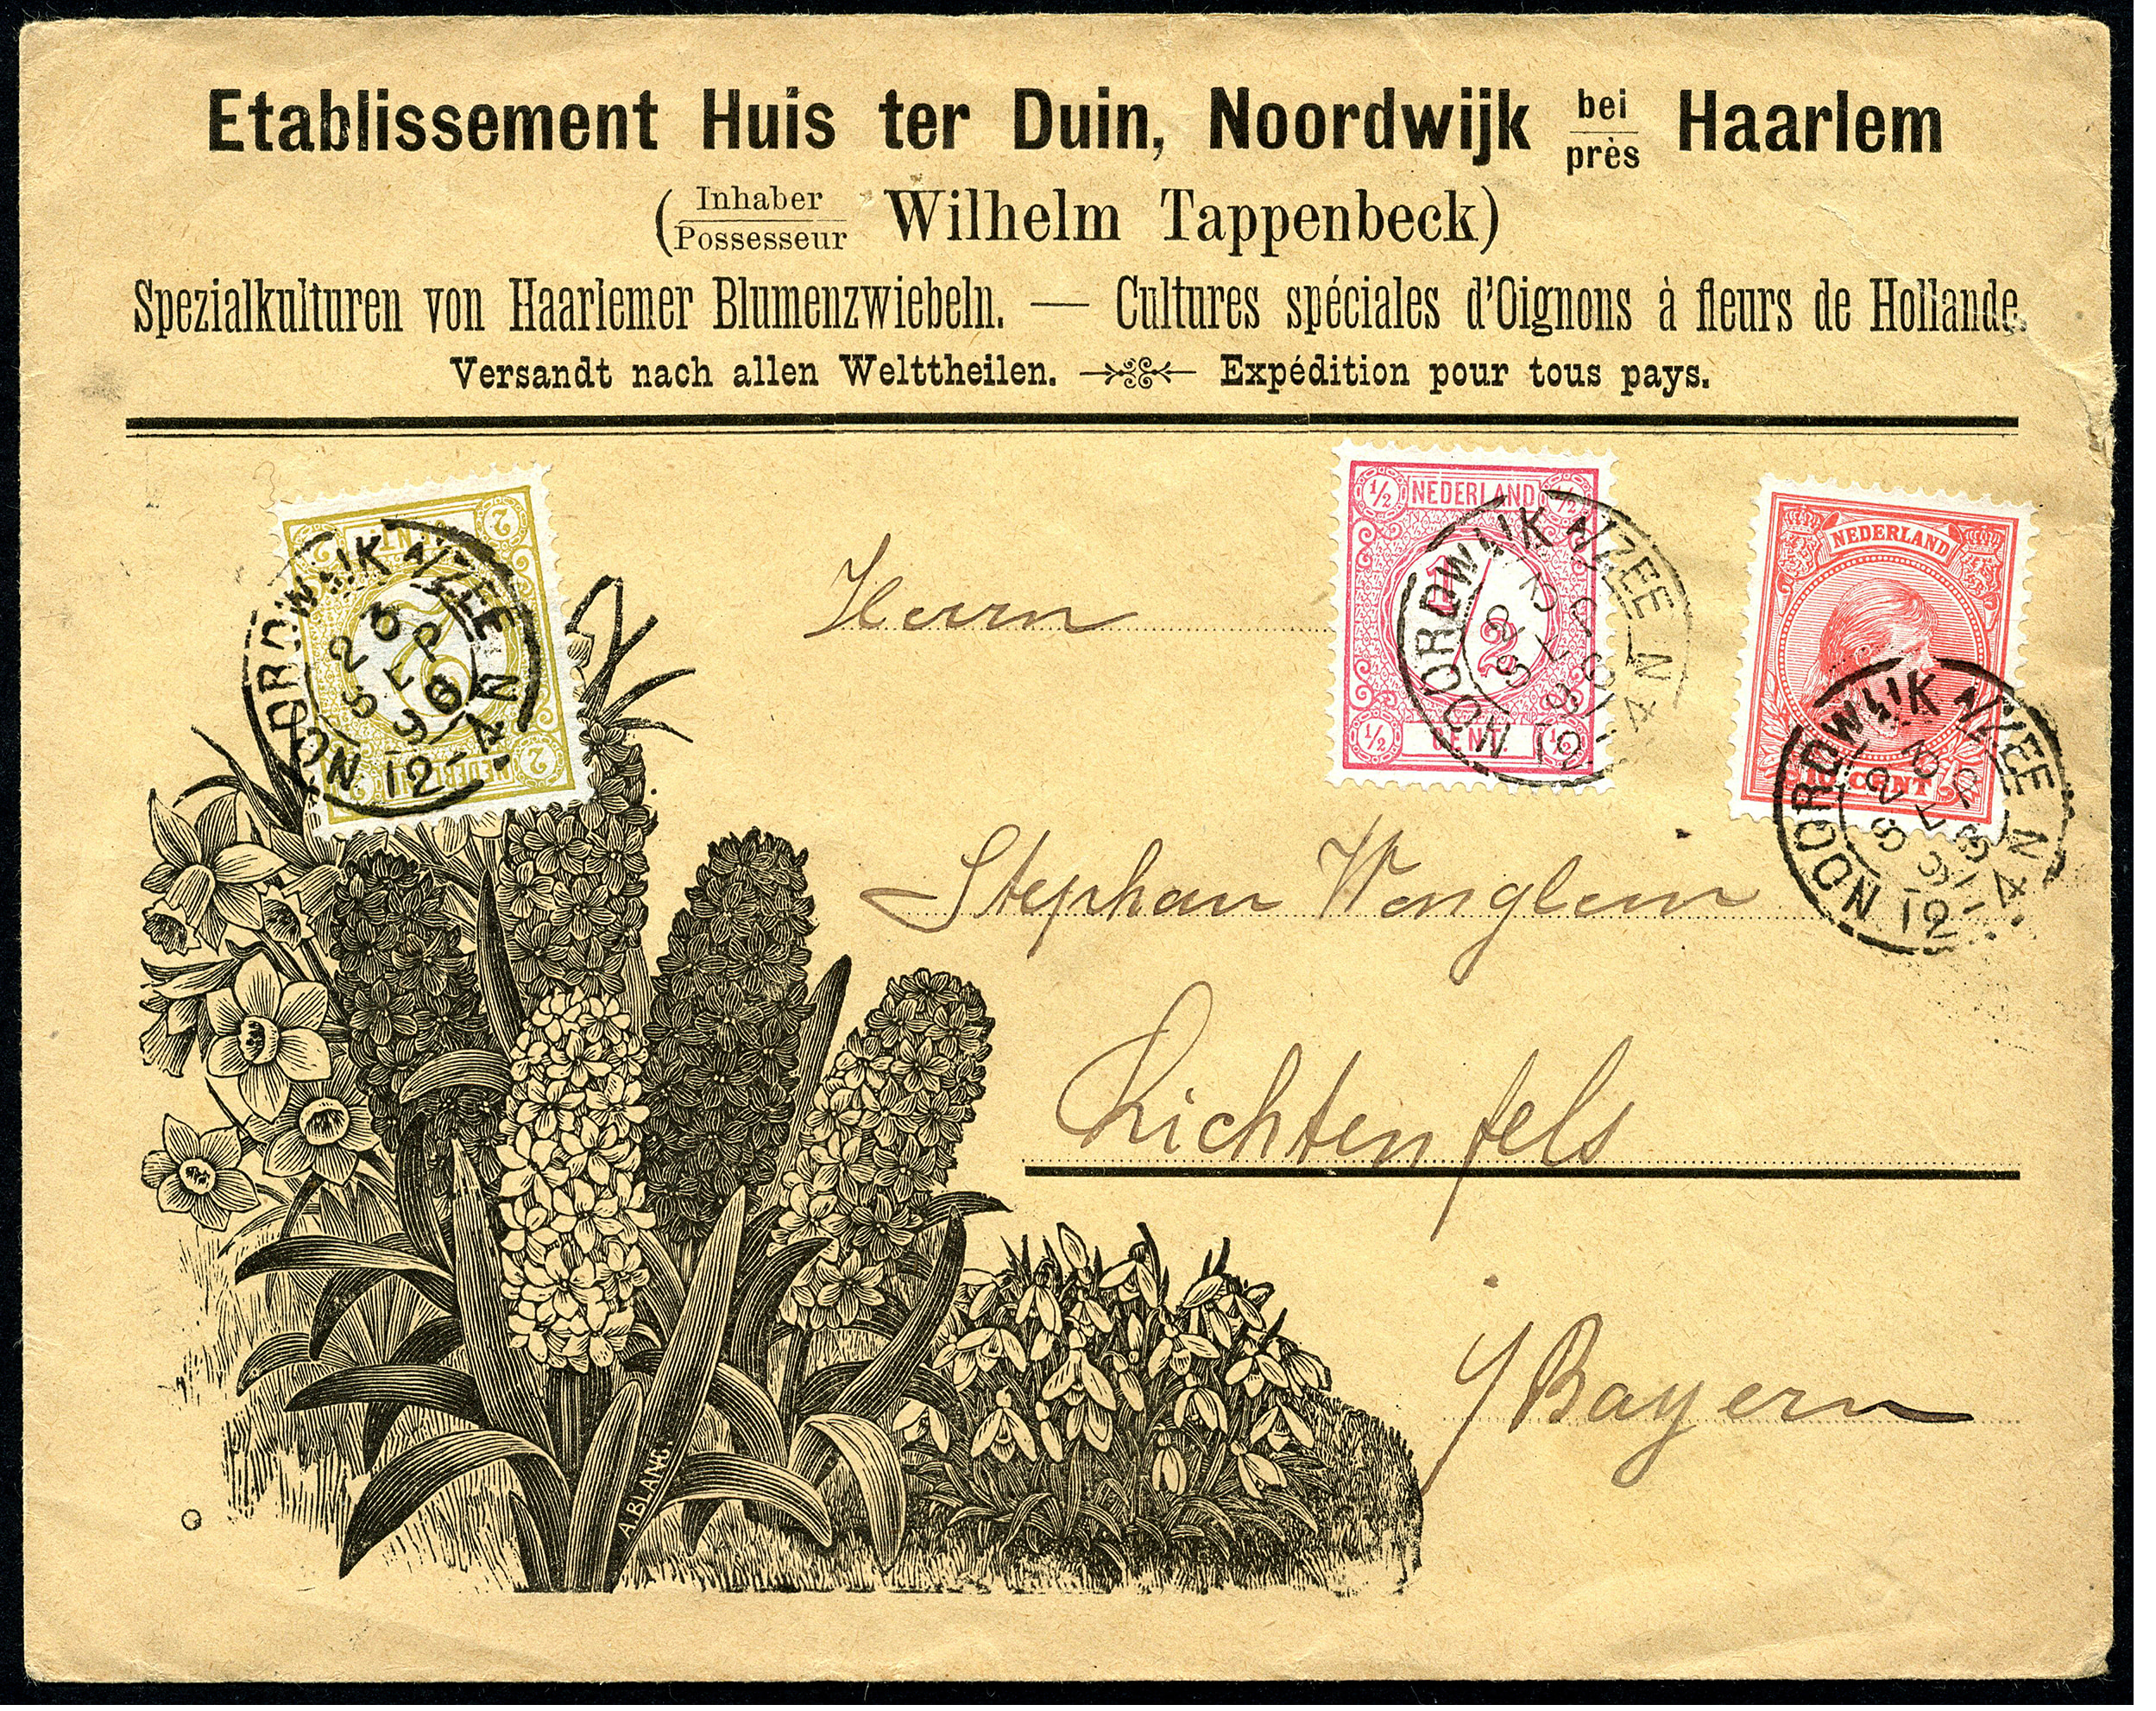 Etablissement Huis ter Duin, Noordwijk bei/près Haarlem
(Inhaber/Possesseur Wilhelm Tappenbeck)
Spezialkulturen von Haarlemer Blumenzwiebeln. — Cultures spéciales d'Oignons à fleurs de Hollande.
Versandt nach allen Welttheilen. Expédition pour tous pays.
2 CENT 2
2
2 NEDERLAND 2
NOORDWIJK A/ZEE
23 SEP 96
12-4 N
½ NEDERLAND ½
1/2
½ CENT. ½
NOORDWIJK A/ZEE
23 SEP 96
12-4 N
NEDERLAND
10 CENT
NOORDWIJK A/ZEE
23 SEP 96
12-4 N
Herrn
Stephan
Lichtenfels
Bayern
A. BLANC.